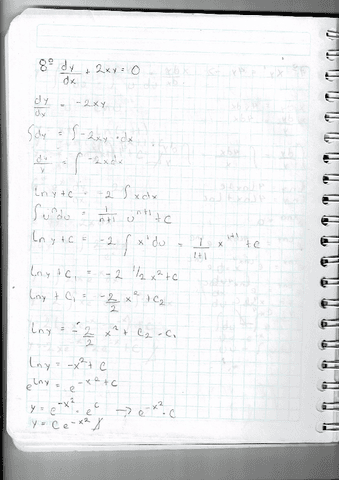 8º dy/dx + 2xy = 0
dy/dx = -2xy
∫dy = ∫-2xy·dx
dy/x = ∫-2xdx
Lny+C = -2 ∫xdx
∫uⁿdu = 1/(n+1) uⁿ⁺¹ + C
Lny+C = -2 ∫x'du = 1/(1+1) x¹⁺¹ + C
Lny+C₁ = -2 1/2 x²+C
Lny + C₁ = -2/2 x² + C₂
Lny = -2/2 x² + C₂ - C₁
Lny = -x²+C
e^Lny = e^-x²+C
y = e^-x² · e^C → e^-x² · C
y = C e^-x²